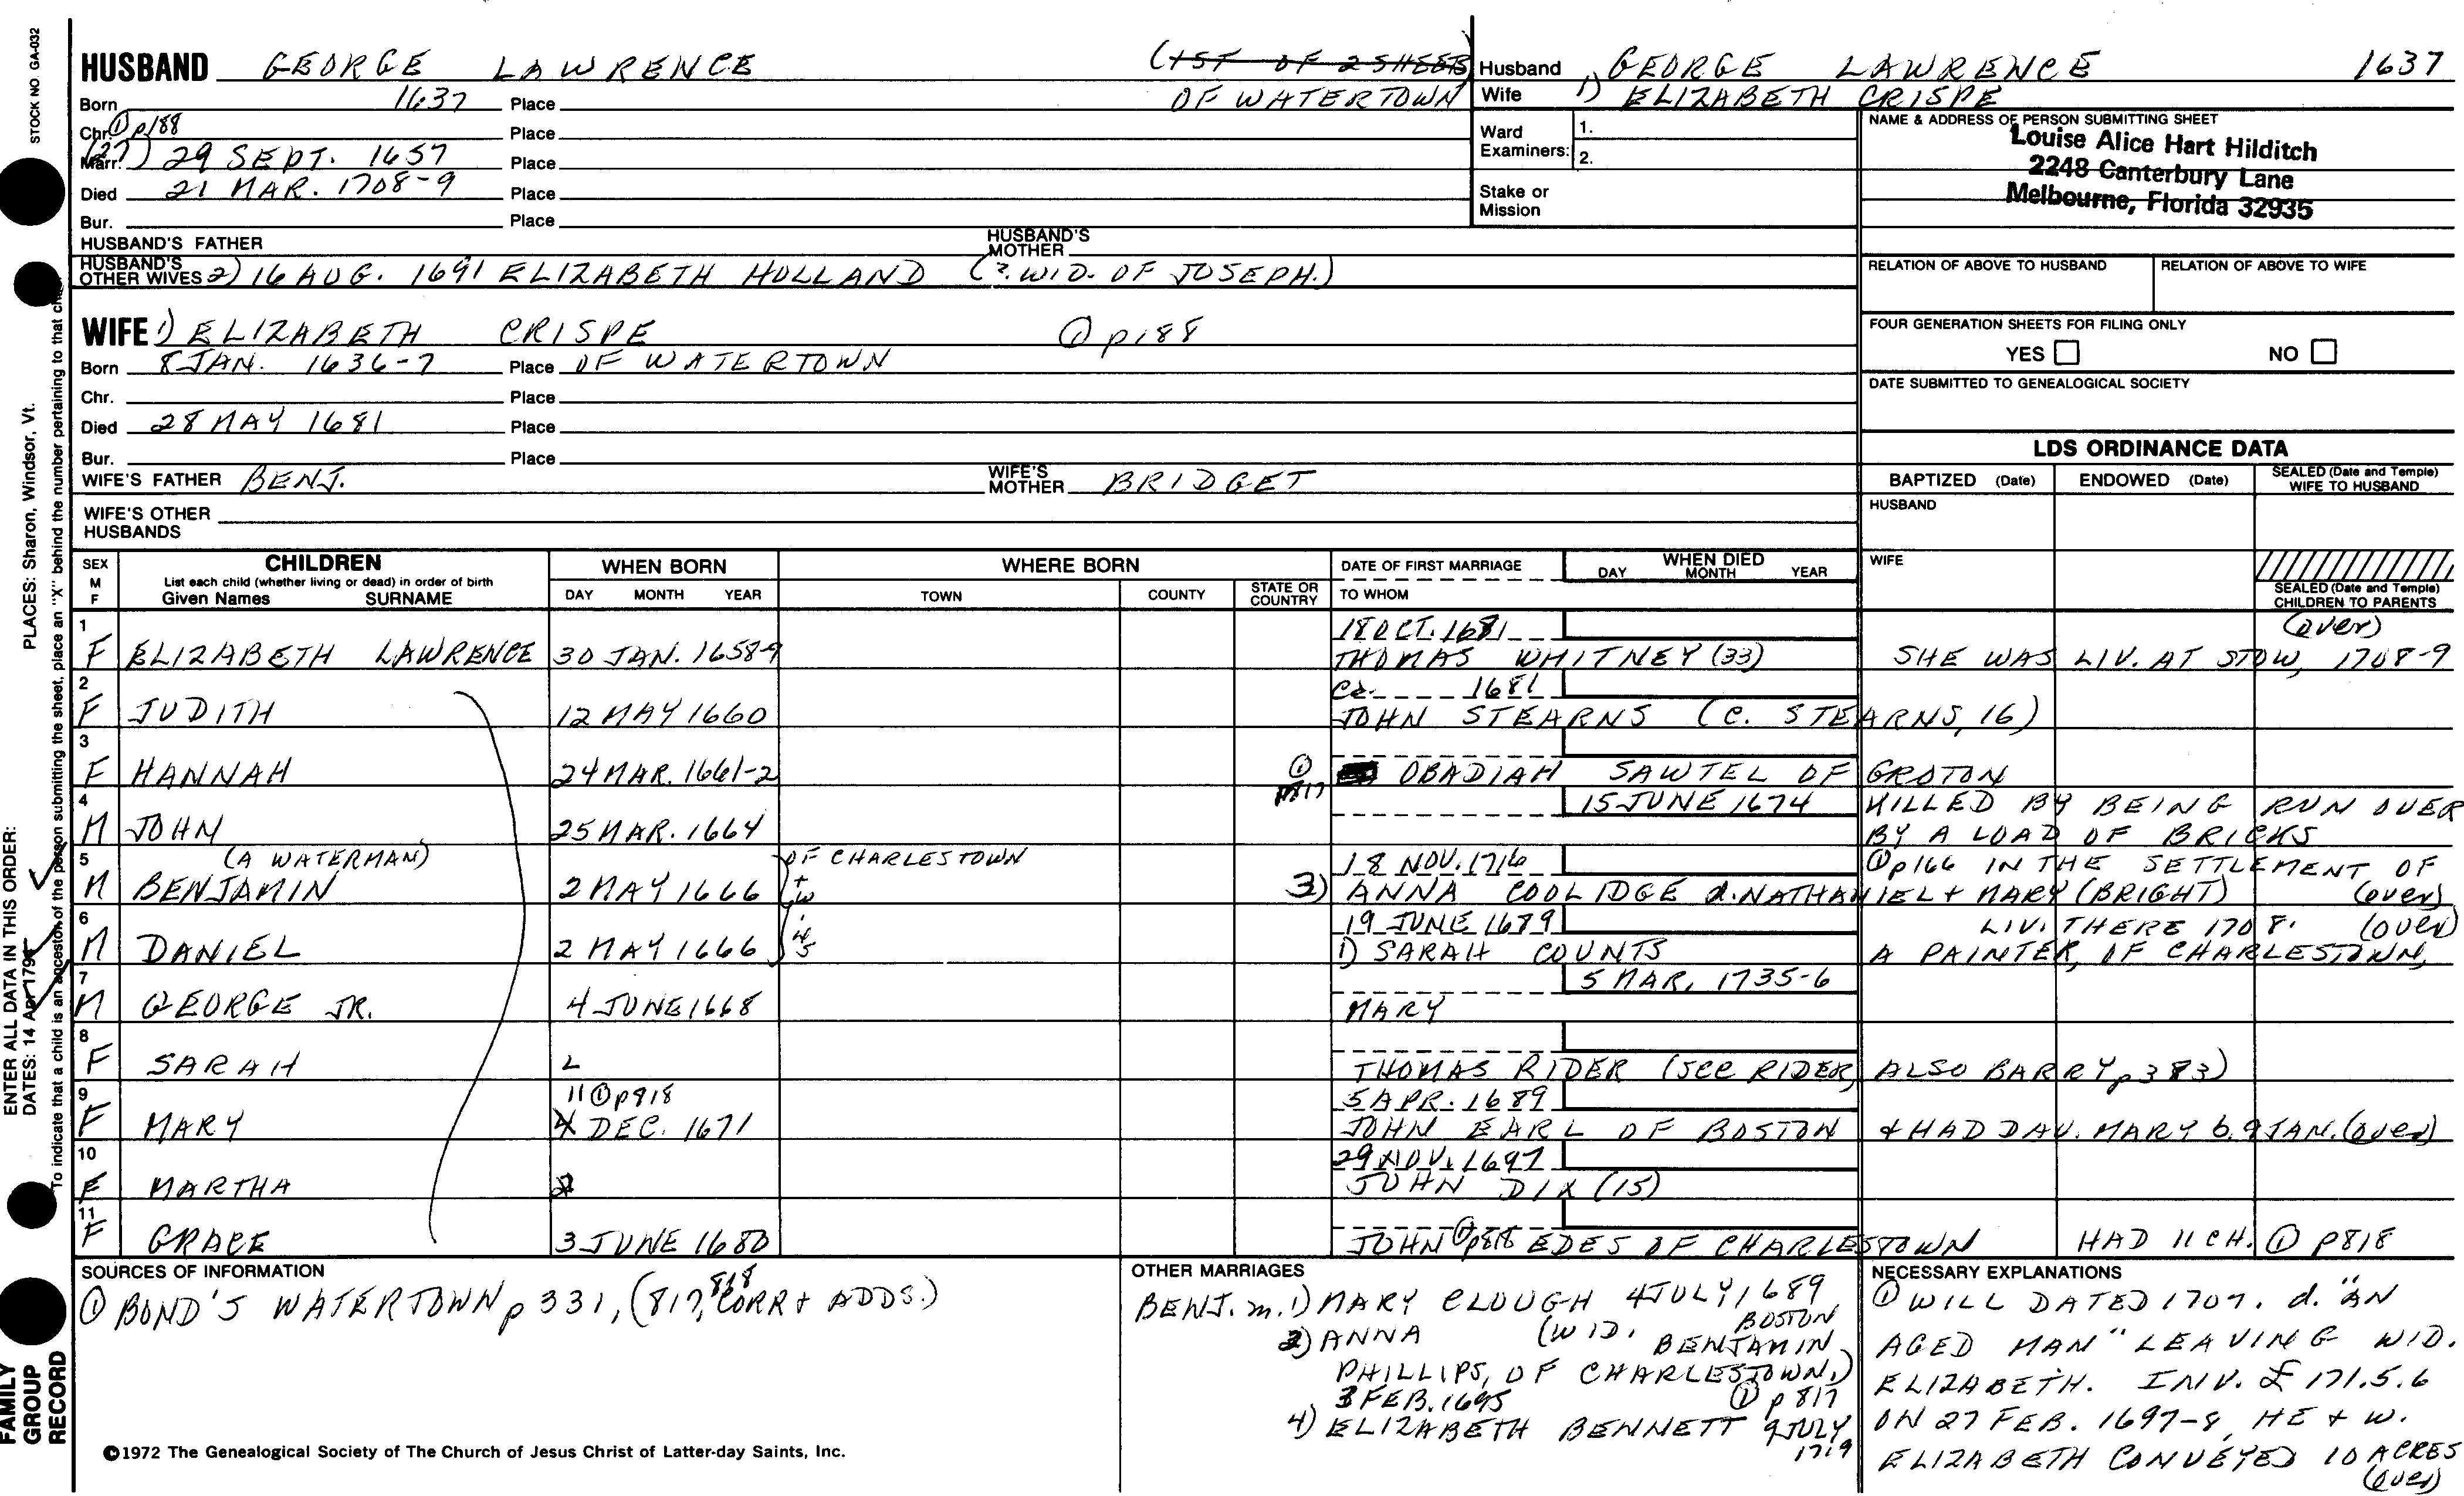 STOCK NO. GA-032
HUSBAND GEORGE LAWRENCE (1ST OF 2 SHEETS)
Born 1637 Place OF WATERTOWN
Chr. ① p188 Place
Marr. (27) 29 SEPT. 1657 Place
Died 21 MAR. 1708-9 Place
Bur. Place
HUSBAND'S FATHER HUSBAND'S MOTHER
HUSBAND'S OTHER WIVES 2) 16 AUG. 1691 ELIZABETH HOLLAND (?. WID. OF JOSEPH.)
WIFE 1) ELIZABETH CRISPE ① p188
Born 8 JAN. 1636-7 Place OF WATERTOWN
Chr. Place
Died 28 MAY 1681 Place
Bur. Place
WIFE'S FATHER BENJ. WIFE'S MOTHER BRIDGET
WIFE'S OTHER HUSBANDS
Husband GEORGE LAWRENCE 1637
Wife 1) ELIZABETH CRISPE
Ward Examiners: 1.
2.
Stake or Mission
NAME & ADDRESS OF PERSON SUBMITTING SHEET
Louise Alice Hart Hilditch
2248 Canterbury Lane
Melbourne, Florida 32935
RELATION OF ABOVE TO HUSBAND RELATION OF ABOVE TO WIFE
FOUR GENERATION SHEETS FOR FILING ONLY
YES NO
DATE SUBMITTED TO GENEALOGICAL SOCIETY
LDS ORDINANCE DATA
BAPTIZED (Date) ENDOWED (Date) SEALED (Date and Temple) WIFE TO HUSBAND
HUSBAND
WIFE
SEALED (Date and Temple) CHILDREN TO PARENTS
SEX M F CHILDREN WHEN BORN WHERE BORN DATE OF FIRST MARRIAGE WHEN DIED
List each child (whether living or dead) in order of birth
Given Names SURNAME DAY MONTH YEAR TOWN COUNTY STATE OR COUNTRY TO WHOM DAY MONTH YEAR
1 18 OCT. 1681 (over)
F ELIZABETH LAWRENCE 30 JAN. 1658-9 THOMAS WHITNEY (33) SHE WAS LIV. AT STOW, 1708-9
2 ca. 1681
F JUDITH 12 MAY 1660 JOHN STEARNS (C. STEARNS, 16)
3
F HANNAH 24 MAR. 1661-2 ① p817 OBADIAH SAWTEL OF GROTON
4 15 JUNE 1674 KILLED BY BEING RUN OVER
M JOHN 25 MAR. 1664 BY A LOAD OF BRICKS
5 (A WATERMAN) OF CHARLESTOWN 18 NOV. 1716 ① p166 IN THE SETTLEMENT OF
M BENJAMIN 2 MAY 1666 + tw 3) ANNA COOLIDGE d. NATHANIEL + MARY (BRIGHT) (over)
6 19 JUNE 1689 LIV. THERE 1708. (over)
M DANIEL 2 MAY 1666 1) SARAH COUNTS A PAINTER, OF CHARLESTOWN,
7 5 MAR, 1735-6
M GEORGE JR. 4 JUNE 1668 MARY
8
F SARAH THOMAS RIDER (see RIDER, ALSO BARRY p 383)
9 11 ① p818 5 APR. 1689
F MARY 4 DEC. 1671 JOHN EARL OF BOSTON + HAD DAU. MARY b. 9 JAN. (over)
10 29 NOV. 1697
F MARTHA JOHN DIX (15)
11
F GRACE 3 JUNE 1680 JOHN ① p818 EDES OF CHARLESTOWN HAD 11 CH. ① p818
SOURCES OF INFORMATION
① BOND'S WATERTOWN p 331, (817, 818 CORR + ADDS.)
OTHER MARRIAGES
BENJ. m. 1) MARY CLOUGH 4 JULY 1689
BOSTON
2) ANNA (WID. BENJAMIN
PHILLIPS, OF CHARLESTOWN,)
3 FEB. 1695 ① p 817
4) ELIZABETH BENNETT 9 JULY
1719
NECESSARY EXPLANATIONS
① WILL DATED 1707. d. "AN
AGED MAN" LEAVING WID.
ELIZABETH. INV. £ 171.5.6
ON 27 FEB. 1697-8, HE + W.
ELIZABETH CONVEYED 10 ACRES
(over)
©1972 The Genealogical Society of The Church of Jesus Christ of Latter-day Saints, Inc.
FAMILY
GROUP
RECORD
ENTER ALL DATA IN THIS ORDER:
DATES: 14 Apr 1794
PLACES: Sharon, Windsor, Vt.
To indicate that a child is an ancestor of the person submitting the sheet, place an "X" behind the number pertaining to that